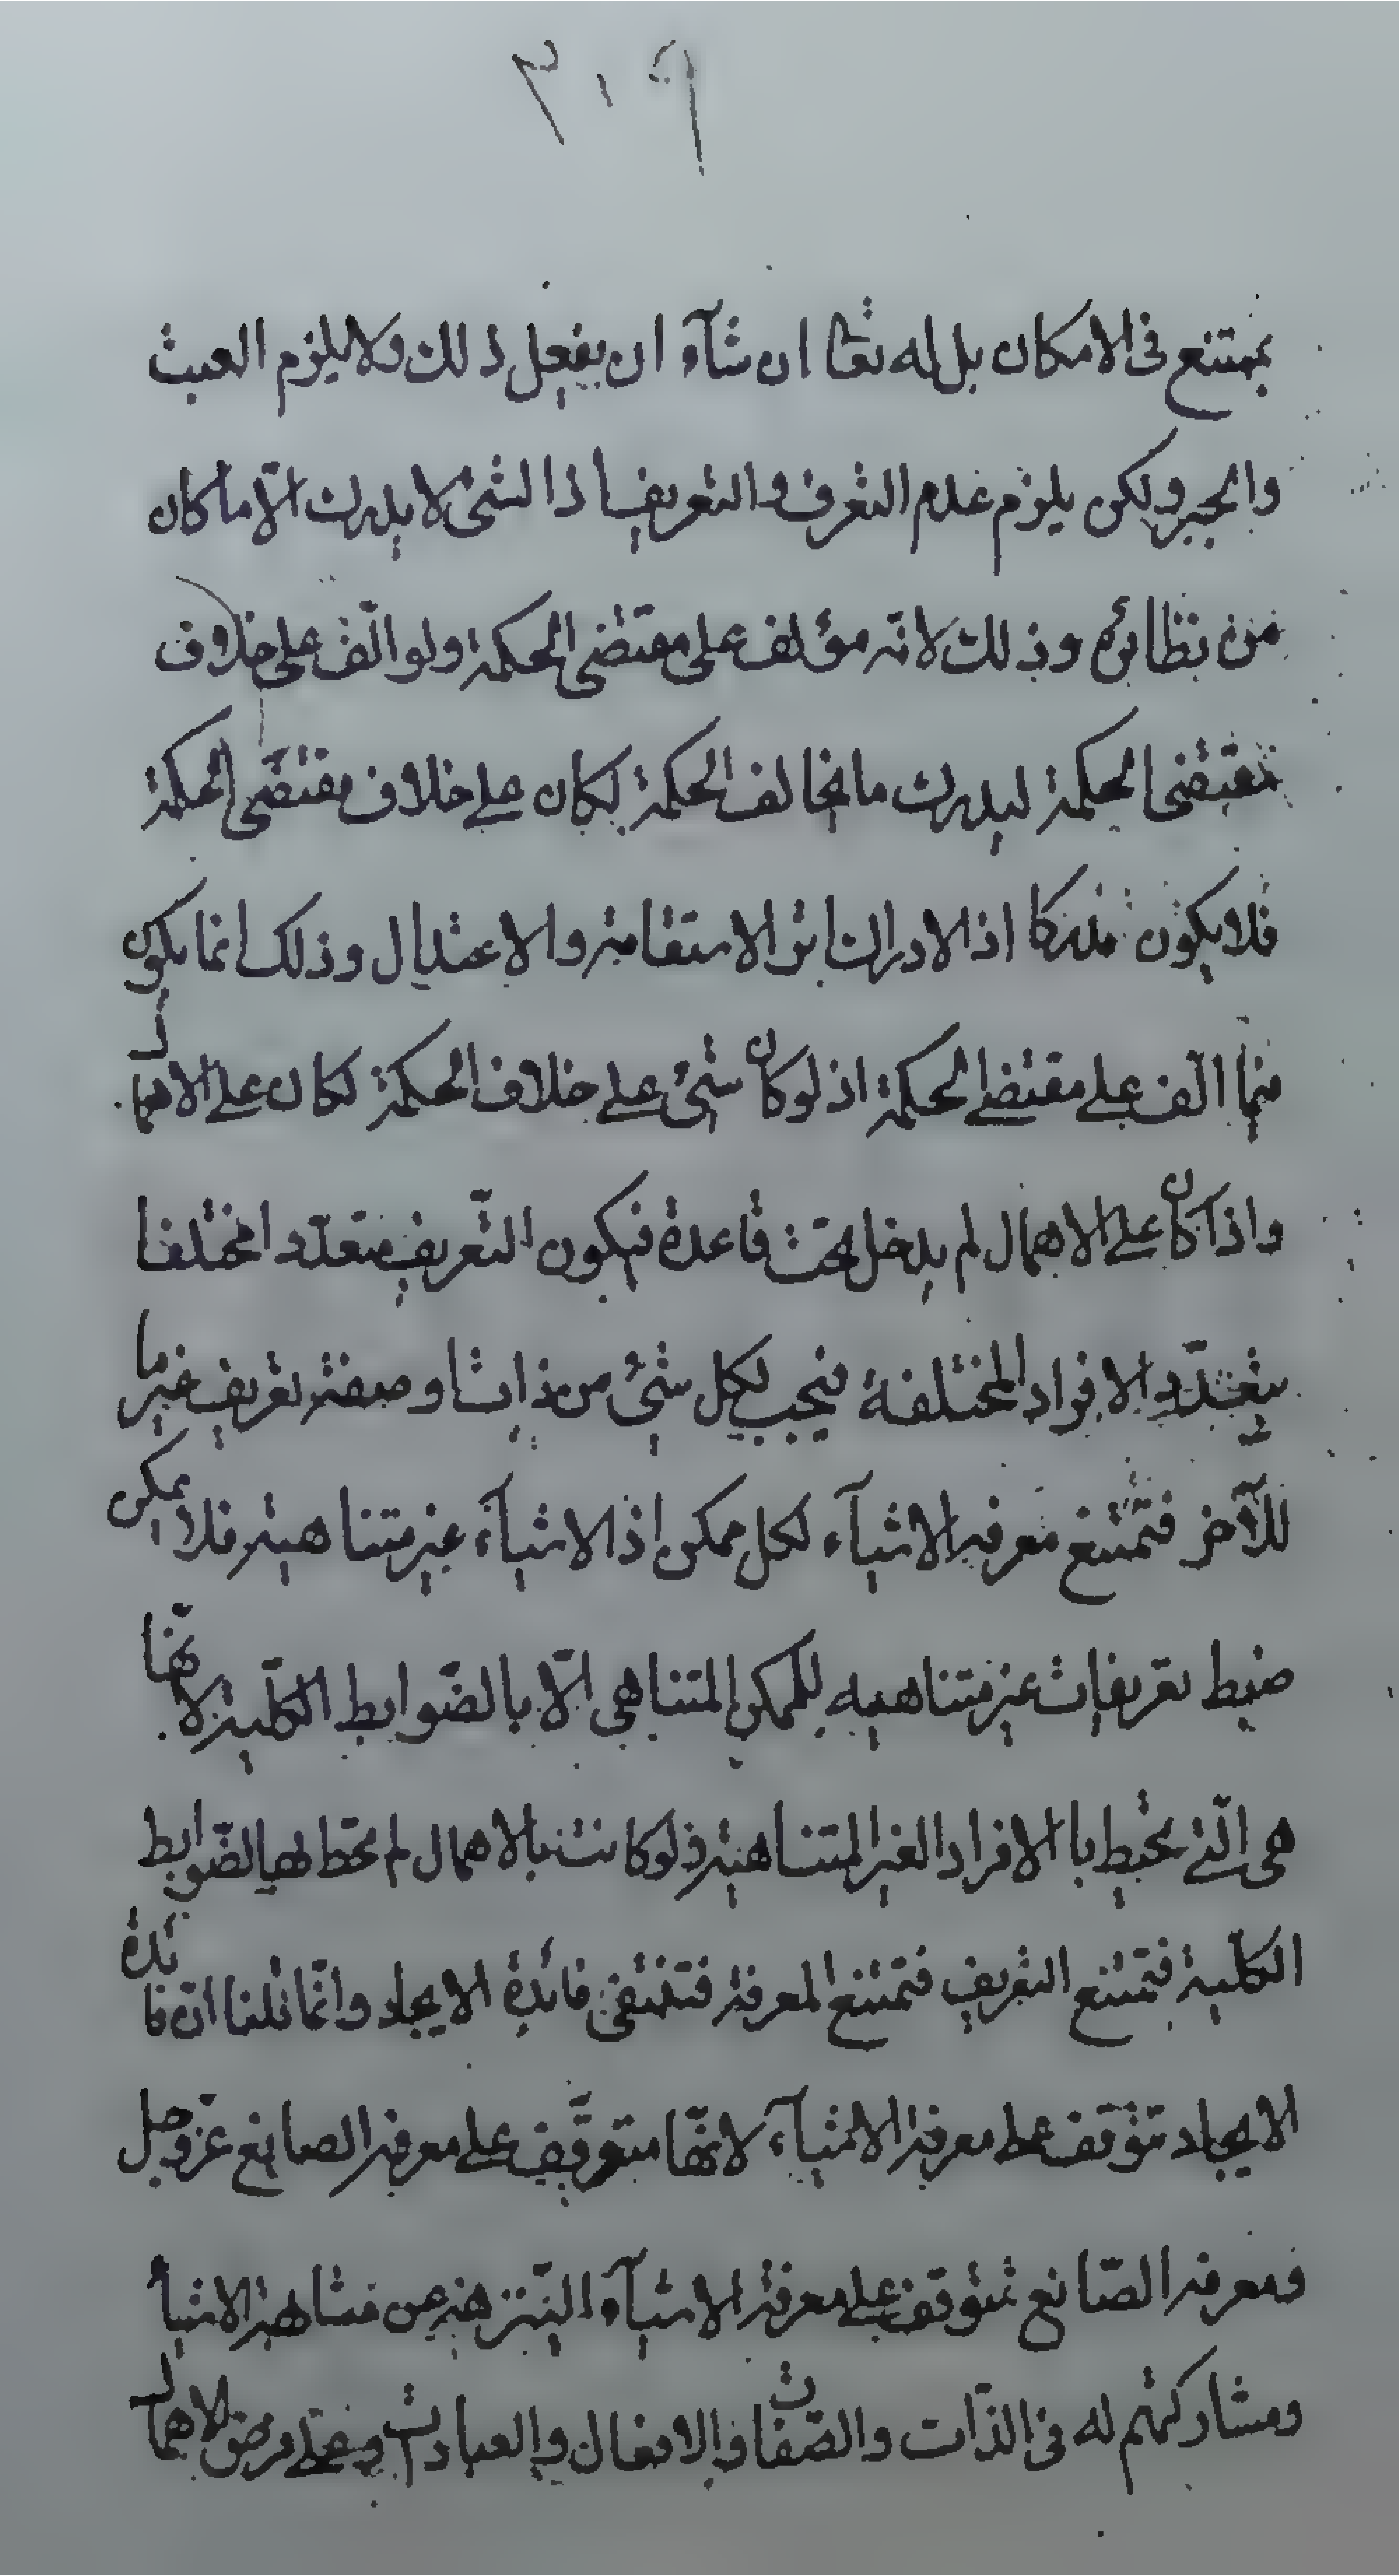 ٣٠٩
بممتنع فى الامكان بل له تعا ان شآء ان يفعل ذلك ولا يلزم العبث
والجبر ولكن يلزم عدم التعرف والتعريف اذا الشئ لا يدرك الّا ما كان
من نظائره وذلك لانّه مؤلف على مقتضى الحكمة ولو الّف على خلاف
مقتضى الحكمة ليدرك ما يخالف الحكمة لكان على خلاف مقتضى الحكمة
فلا يكون مدركا اذ الادراك اثر الاستقامة والاعتدال وذلك انما يكون
فيما الّف على مقتضى الحكمة اذ لو كان شئ على خلاف الحكمة لكان على الاهمال
واذا كان على الاهمال لم يدخل تحت قاعدة فيكون التّعريف متعدّدا مختلفا
بتعدّد الافراد المختلفة فيجب لكل شئ من ذات وصفة تعريف غير ما
للآخر فتمتنع معرفة الاشيآء لكل ممكن اذ الاشيآء غير متناهية فلا يمكن
ضبط تعريفات غير متناهيه للممكن المتناهى الّا بالضّوابط الكلّية لانّها
هى الّتى تحيط با الافراد الغير المتناهية فلو كانت بالاهمال لم تحط بها الضّوابط
الكلّية فتمتنع التعريف فتمتنع المعرفة فتنتفى فائدة الايجاد وانّما قلنا انّ فائدة
الايجاد تتوقف على معرفة الاشيآء لانّها متوقّف على معرفة الصانع عزّ وجل
ومعرفة الصّانع تتوقف على معرفة الاشيآء التنزهه عن مشابهة الاشيآء
ومشاركتهم له فى الذّات والصّفات والافعال والعبادات وعلى فرض الاهمال